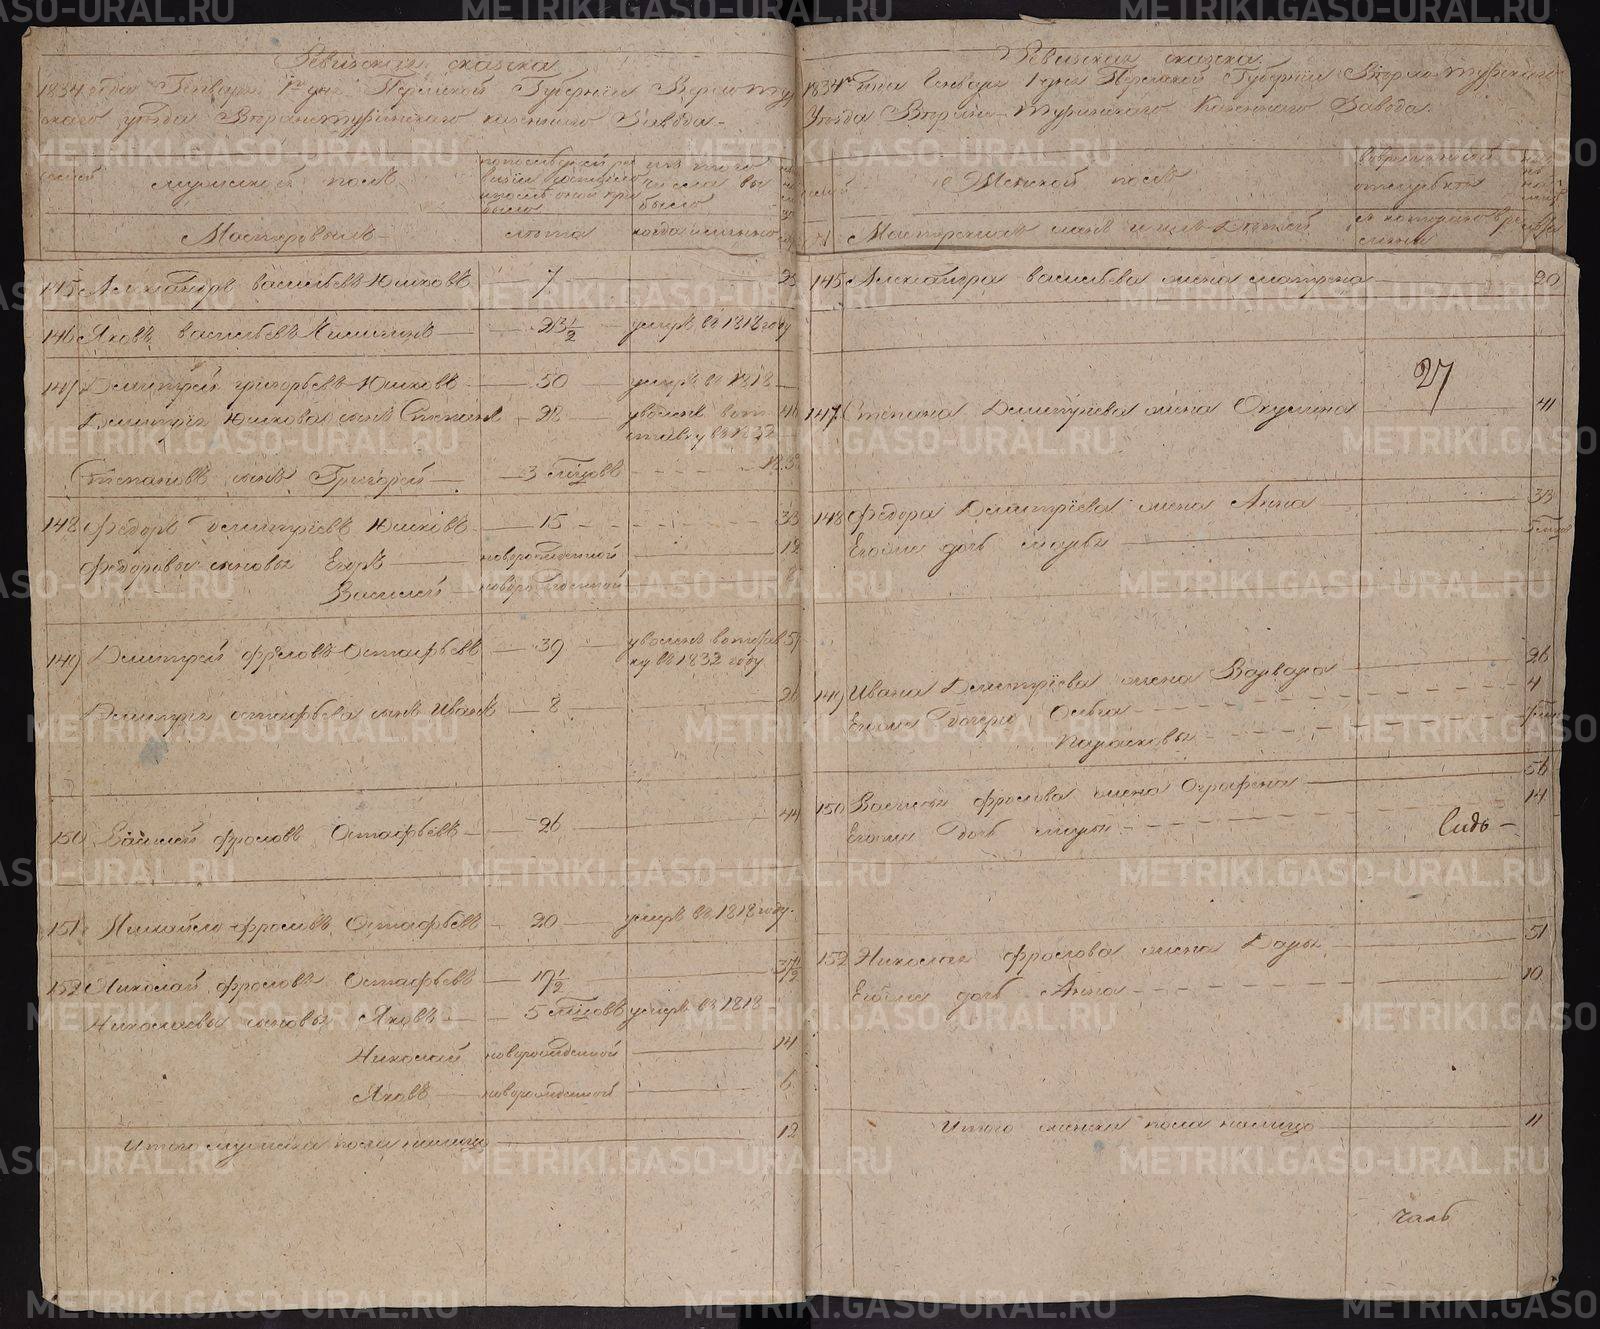 Ревизская сказка
1834 года Генваря 1го дня Пермской Губернии Верхотур
скаго уезда Верхнетуринскаго казеннаго Завода
мужеской полъ
по последней ре
визии состояло
и после оной при
было
изъ того
числа вы
было
Мастеровые
лета
когда именно
145 Александръ васильевъ Юшковъ 7 25
146 Яковъ васильевъ 23½ умеръ въ 1818 году
147 Дмитрей григорьевъ Юшковъ 50 умеръ въ 1818
Дмитрия Юшкова сынъ Степанъ 28 уволенъ въ от
ставку въ 1832
Степановъ сынъ Григорей 3 месяцовъ
148 Федоръ Дмитриевъ Юшковъ 15 33
Федоровы сыновья Егоръ новорожденной 12
Василей новорожденной
149 Дмитрей фроловъ Остафьевъ 39 уволенъ въ отстав 57
ку въ 1832 году
Дмитрия остафьева сынъ Иванъ 8 26
150 Василей фроловъ Остафьевъ 26 44
151 Михайло фроловъ Остафьевъ 20 умеръ въ 1818 году.
152 Николай фроловъ Остафьевъ 19½ 37½
Николаевы сыновья Яковъ 5 месяцовъ умеръ въ 1818
Николай новорожденной 14
Яковъ новорожденной 6
Итого мужеска пола налицо 12
Ревизская сказка
1834го года Генваря 1 дня Пермской Губернии Верхотурскаго
Уезда Верхне-Туринскаго Казеннаго Завода.
Женской полъ
во временной
отлучке
Мастерские жены и ихъ дети
съ котораго вре
мени
145 Александра васильева жена матрена 20
27
147 Степана Дмитриева жена Окулина 41
148 Федора Дмитриева жена Анна 33
Егожа дочь марья
149 Ивана Дмитриева жена Варвара 26
Егожа дочери Ольга 4
Парасковья
150 Василья фролова жена Ографена 56
Егожа дочь марья 14
152 Николая фролова жена Дарья 51
Егожа дочь Анна 10
Итого женска пола налицо 11
METRIKI.GASO-URAL.RU